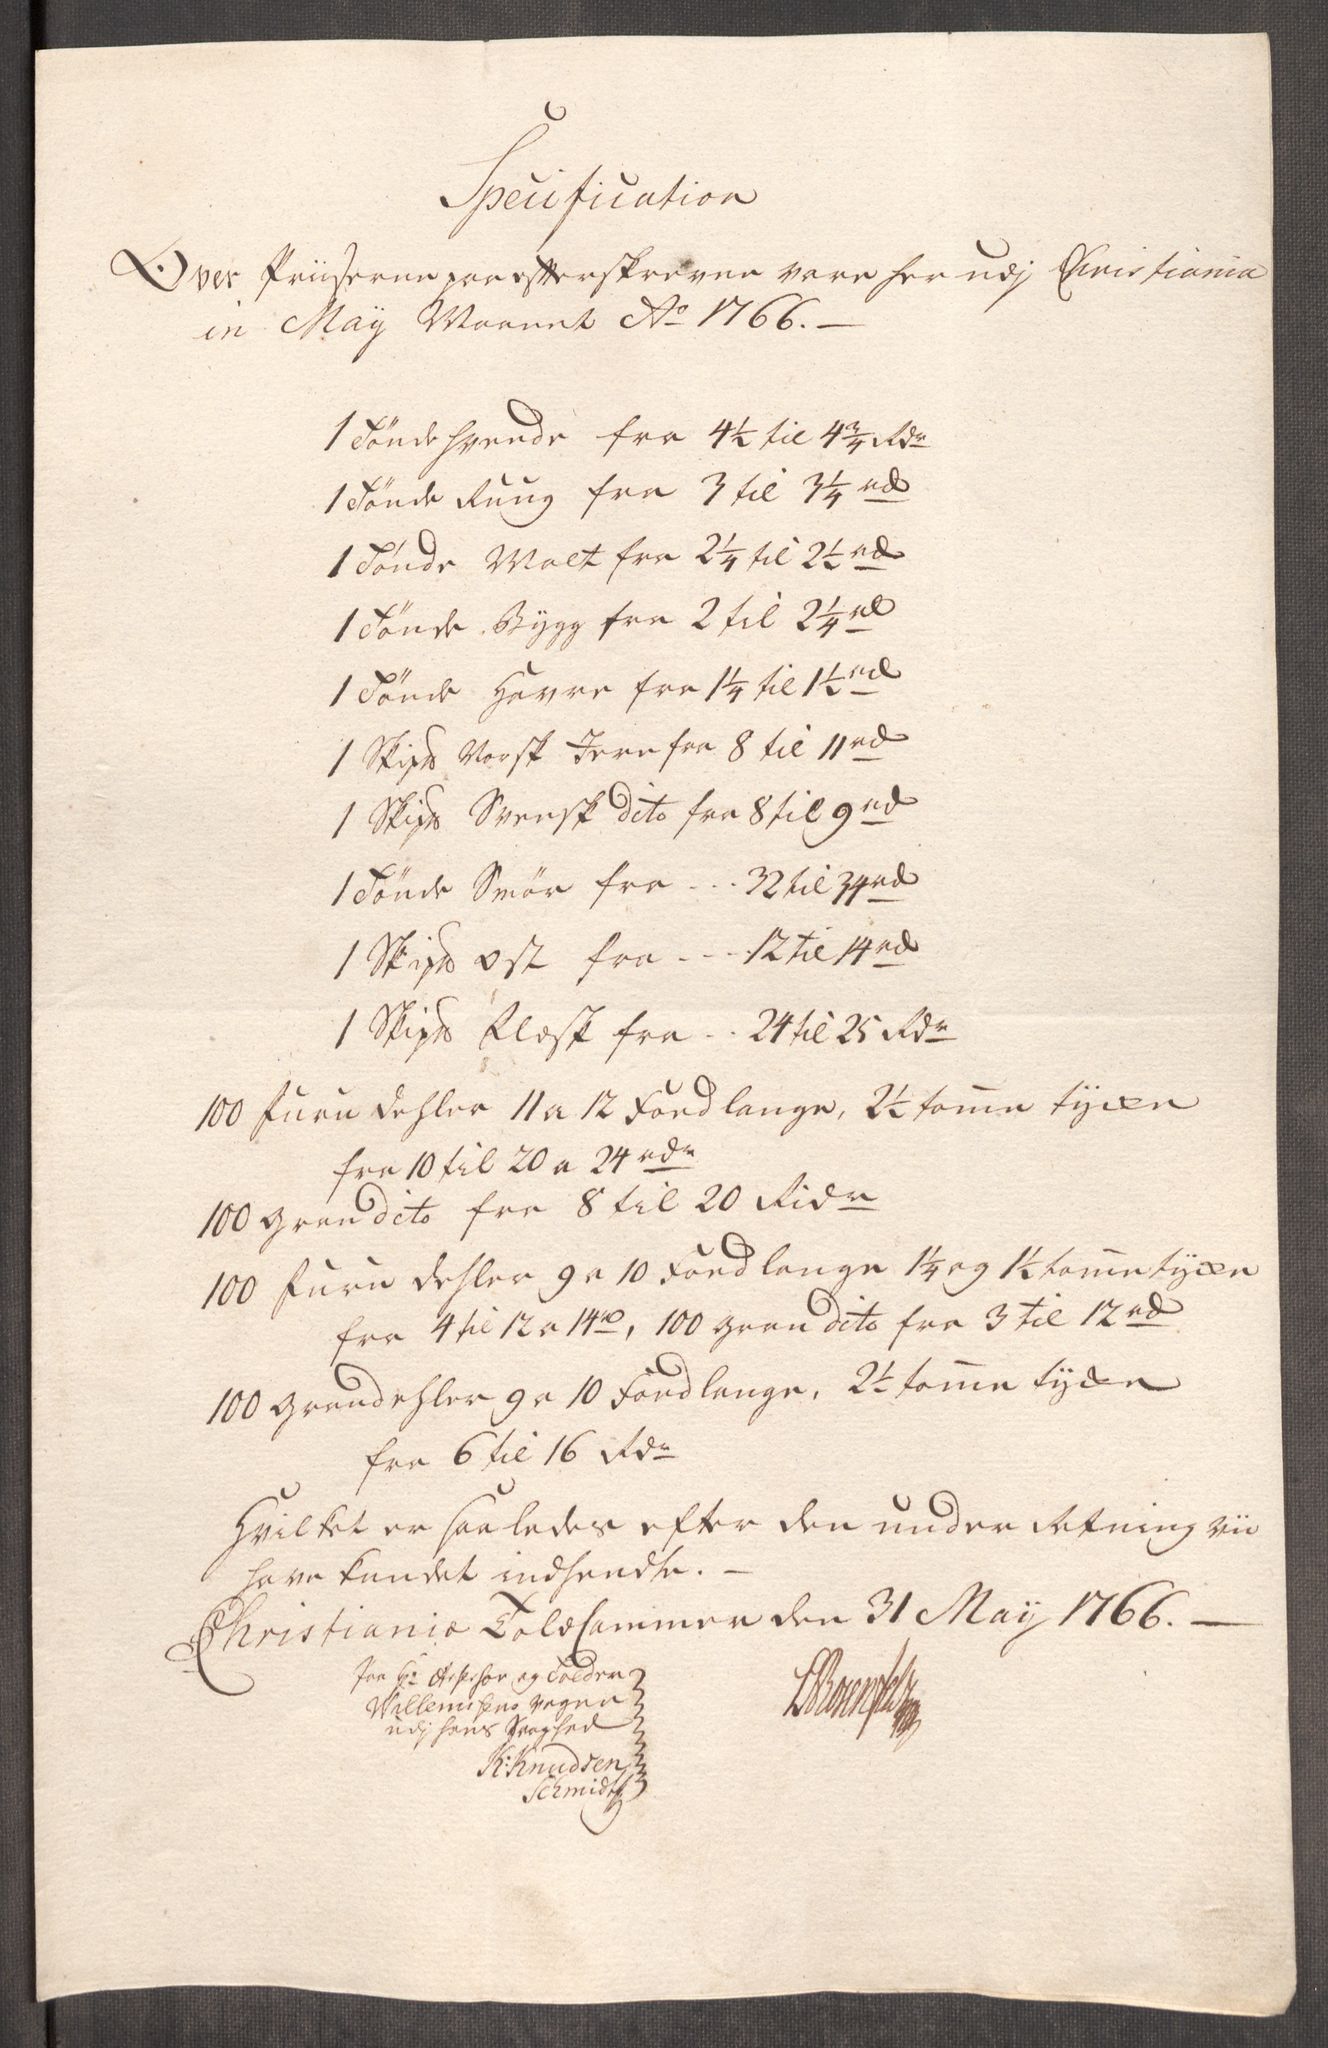 Specification
Over Priiserne paa efterskrevne vare her udj Christiania
in Maÿ Maanet Ao 1766. —
1 Tönde hvede fra 4½ til 4¾ Rdr
1 Tönde Rug fra 3 til 3¼ rd
1 Tönde Malt fra 2¼ til 2½ rd
1 Tönde Bygg fra 2 til 2¼ rd
1 Tönde Havre fra 1¼ til 1½ rd
1 Skip℔ Norsk Jern fra 8 til 11 rd
1 Skip℔ Svensk dito fra 8 til 9 rd
1 Tönde Smör fra - - - 32 til 34 rd
1 Skip℔ Ost fra - - - 12 til 14 rd
1 Skip℔ Flæsk fra - - 24 til 25 Rdr
100 furu dehler 11 a 12 Foed lange, 2½ tomme tycke
fra 10 til 20 a 24 rdr
100 gran dito fra 8 til 20 Ridr
100 furu dehler 9 a 10 Foed lange 1¼ og 1½ tomme tycke
fra 4 til 12 a 14 rd, 100 gran dito fra 3 til 12 rd
100 grandehler 9 a 10 Foed lange, 2½ tomme tycke
fra 6 til 16 Rdr
Hvilket er saaledes efter den underretning vii
have kundet indhendte. —
Christiania Told Cammer den 31 Maÿ 1766. —
Paa Hr Assessor og Tolder
Willemsens vegne
udj hans Svaghed
K: Knudsen
Schmidt